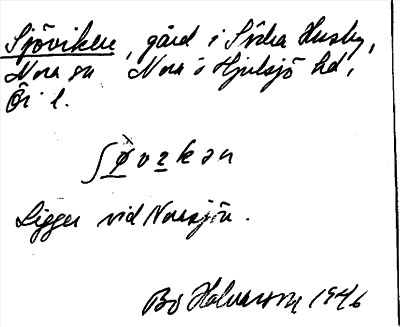 Sjöviken, gård i Södra Husby,
Nora sn Nora o Hjulsjö hd,
Ör l.
ʃøvɪkən
Ligger vid Norasjön.
Bo Halvarson 1946